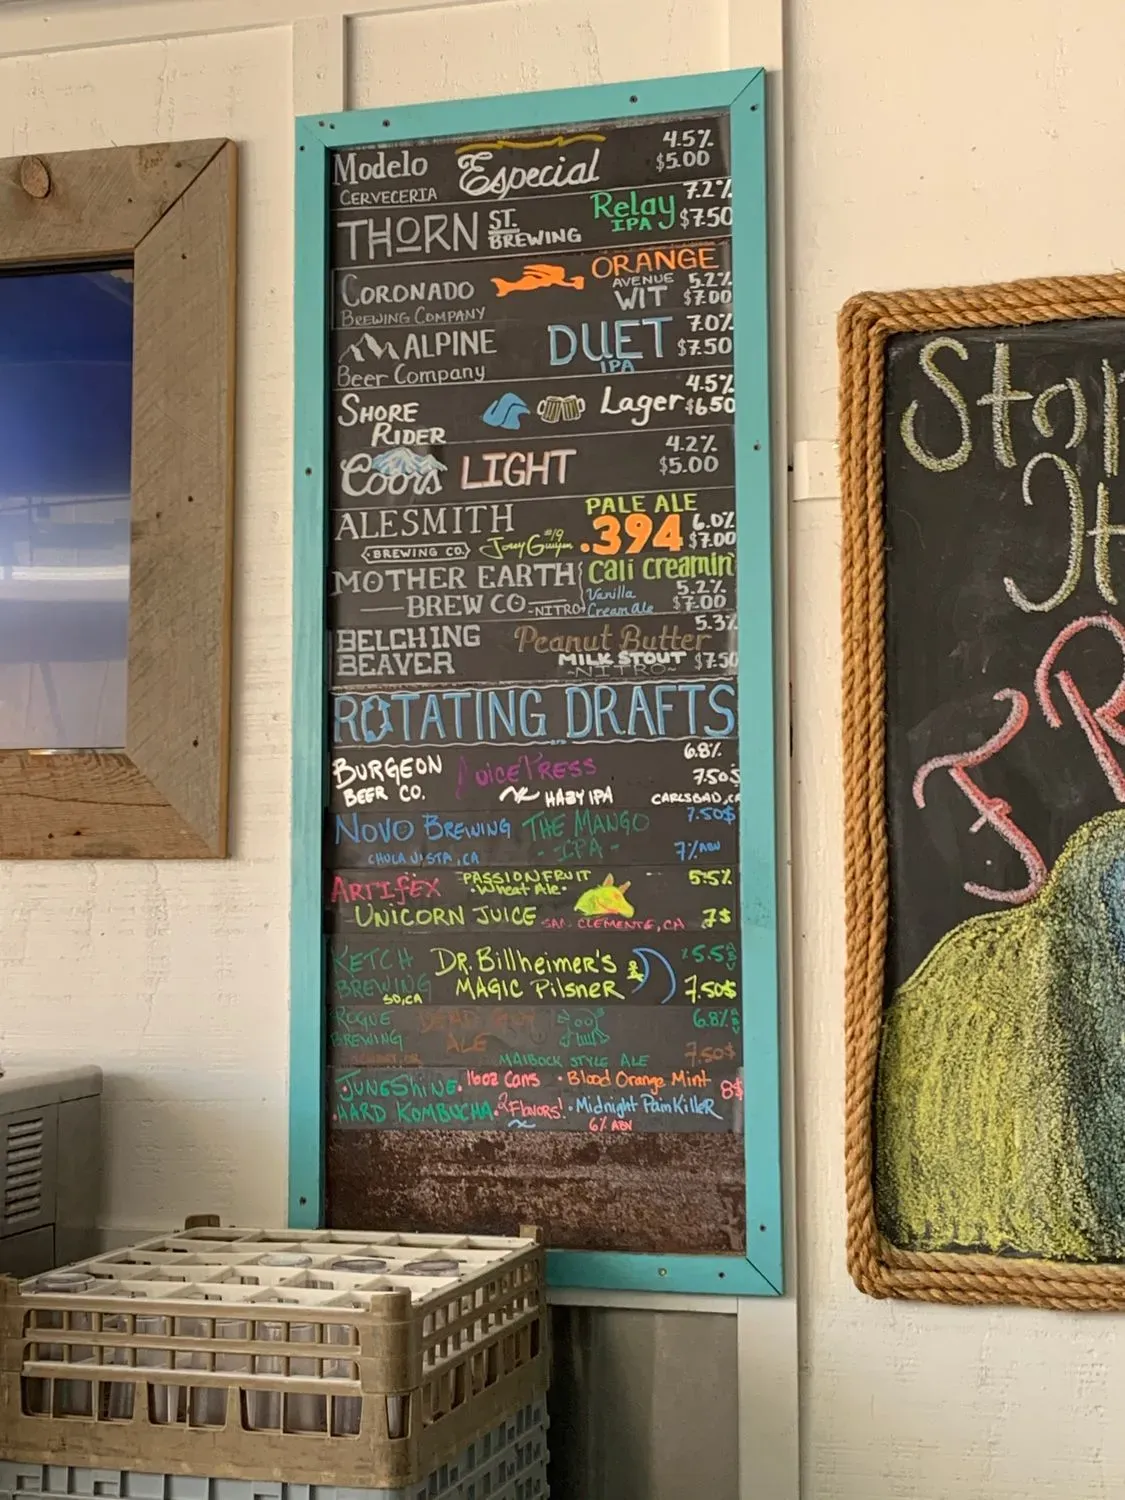 Modelo Especial 4.5%
CERVECERIA $5.00
THORN ST. BREWING Relay IPA 7.2% $7.50
CORONADO BREWING COMPANY ORANGE AVENUE WIT 5.2% $7.00
ALPINE Beer Company DUET IPA 7.0% $7.50
SHORE RIDER Lager 4.5% $6.50
Coors LIGHT 4.2% $5.00
ALESMITH PALE ALE
BREWING CO. .394 6.0% $7.00
MOTHER EARTH Cali creamin'
BREW CO -NITRO- Vanilla Cream ale 5.2% $7.00
BELCHING BEAVER Peanut Butter 5.3%
MILK STOUT $7.50
~NITRO~
ROTATING DRAFTS
BURGEON JUICE PRESS 6.8%
BEER CO. HAZY IPA 7.50$
CARLSBAD, CA
NOVO BREWING THE MANGO 7.50$
CHULA VISTA, CA -IPA- 7% ABV
ARTIFEX PASSIONFRUIT 5.5%
•Wheat Ale•
UNICORN JUICE SAN CLEMENTE, CA 7$
KETCH DR. Billheimer's 5.5% ABV
BREWING MAGIC Pilsner 7.50$
SD, CA
ROGUE DEAD GUY 6.8% ABV
BREWING ALE
MAIBOCK STYLE ALE 7.50$
JUNESHINE •16oz Cans •Blood Orange Mint 8$
HARD KOMBUCHA •2 Flavors! •Midnight PainKilleR
6% ABV